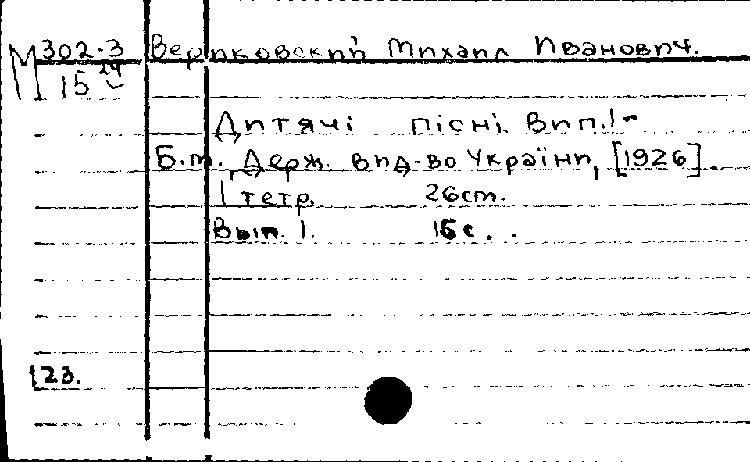 М 302-3 Вериковский Михаил Иванович.
15
Дитячі пісні. Вип. 1-
Б.м., Держ. вид-во України, [1926].
1 тетр. 26 cm.
Вып. 1. 15 с.
123.